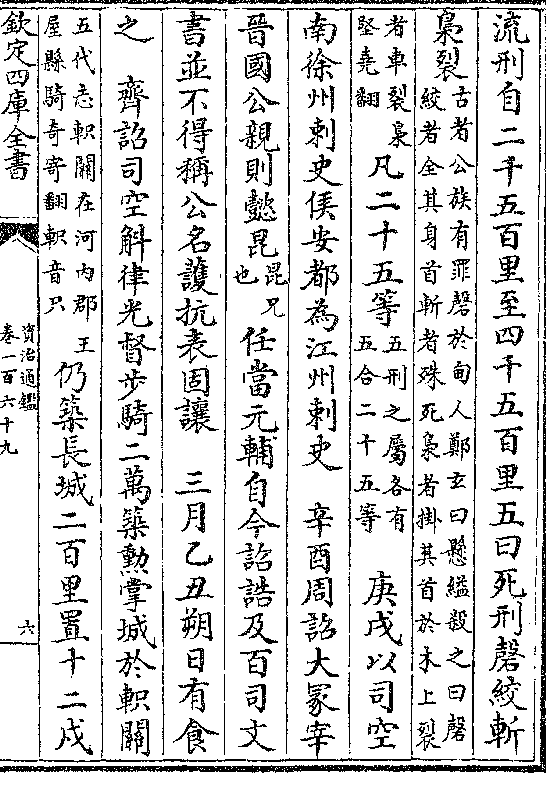 流刑自二千五百里至四千五百里五曰死刑磬絞斬
梟裂古者公族有罪磬於甸人鄭玄曰懸縊殺之曰磬
絞者全其身首斬者殊死梟者掛其首於木上裂
者車裂梟
堅堯翻
凡二十五等五刑之屬各有
五合二十五等
庚戌以司空
南徐州刺史侯安都為江州刺史　辛酉周詔大冢宰
晉國公親則懿昆昆兄
也
任當元輔自今詔誥及百司文
書並不得稱公名護抗表固讓　三月乙丑朔日有食
之　齊詔司空斛律光督步騎二萬築勲掌城於軹關
五代志軹關在河内郡王
屋縣騎奇寄翻軹音只
仍築長城二百里置十二戍
欽定四庫全書
資治通鑑
卷一百六十九
六